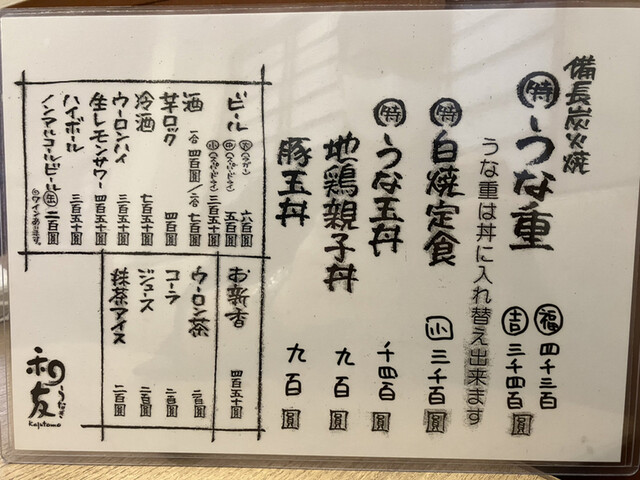 備長炭火焼
特 うな重
福 四千三百
吉 三千四百圓
うな重は丼に入れ替え出来ます
特 白焼定食 小 三千百圓
特 うな玉丼 千四百圓
地鶏親子丼 九百圓
豚玉丼 九百圓
ビール
六百圓
五百圓
三百五十圓
酒 一合 四百圓/二合 七百圓
芋ロック 四百圓
冷酒 七百五十圓
ウーロンハイ 三百五十圓
生レモンサワー 四百五十圓
ハイボール 三百五十圓
ノンアルコールビール 缶 二百圓
ワインあります。
お新香 四百五十圓
ウーロン茶 二百圓
コーラ 二百圓
ジュース 二百圓
抹茶アイス 二百圓
うなぎ
和友
Kazutomo